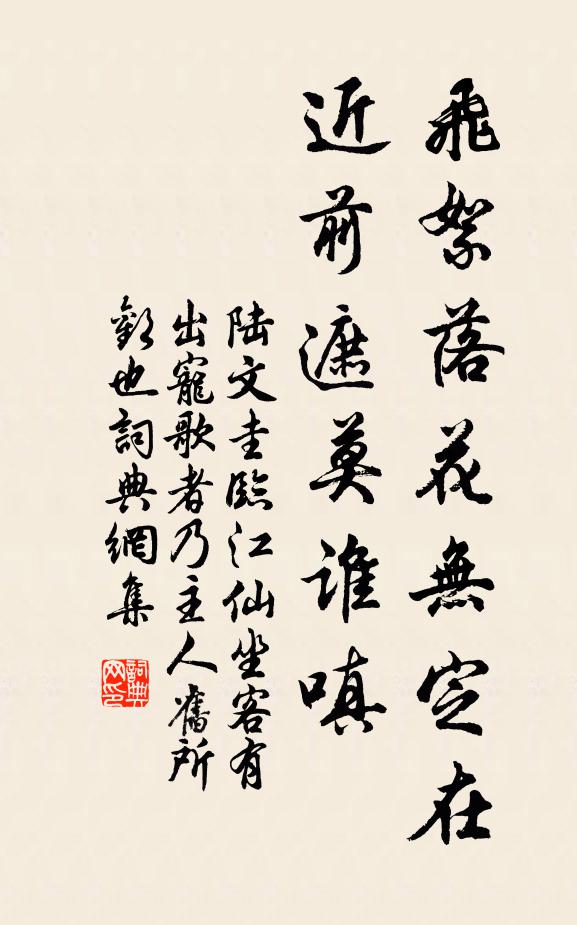 飛絮落花無定在
近前遮莫誰嗔
陸文圭臨江仙坐客有
出寵歌者乃主人舊所
歡也詞典網集
詞典
网印